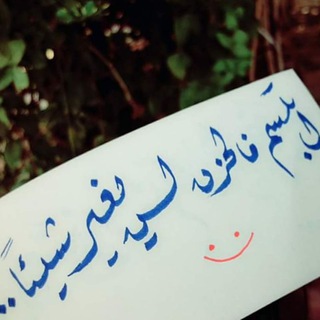 ابتسم فالحزن لن يغير شيئاً..